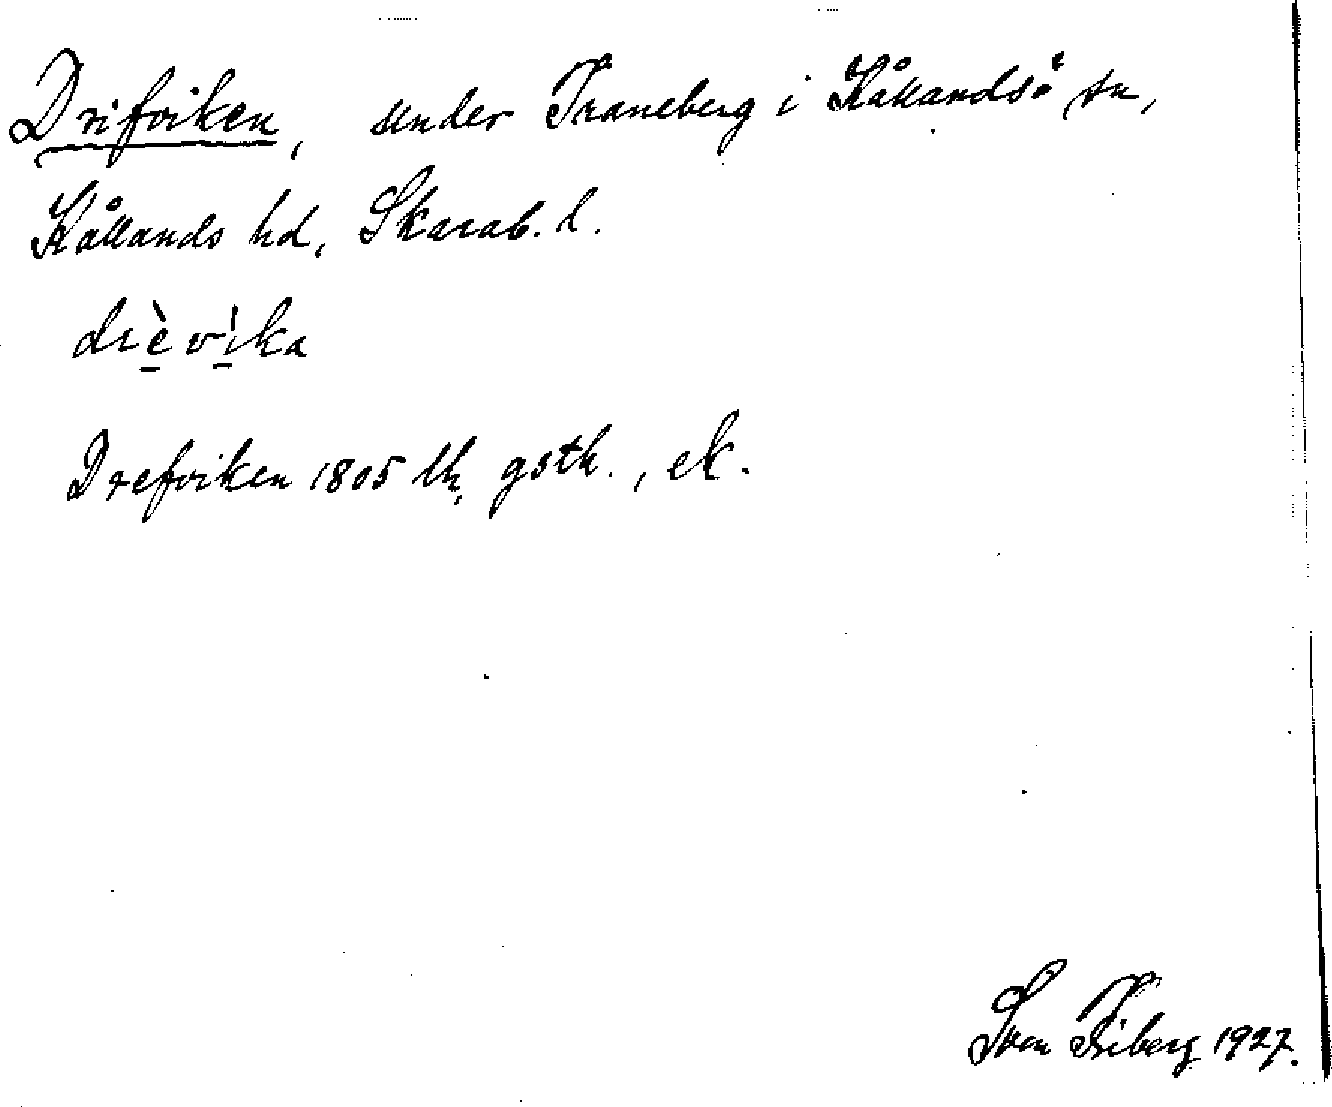 Drifviken, under Traneberg i Kållandsö sn,
Kållands hd, Skarab. l.
drèvíka
Drefviken 1805 lh, gsth., ek.
Sven Friberg 1927.